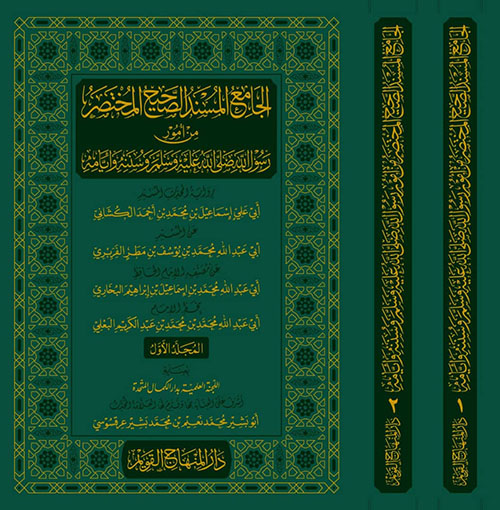 الجامع المسند الصحيح المختصر
من أمور
رسول الله صلى الله عليه وسلم وسننه وأيامه
أبي علي إسماعيل بن محمد بن أحمد الكشاني
عن
أبي عبد الله محمد بن يوسف بن مطر الفربري
عن
أبي عبد الله محمد بن إسماعيل بن إبراهيم البخاري
بخط الإمام
أبي عبد الله محمد بن محمد بن عبد الكريم البعلي
المجلد الأول
بعناية
اللجنة العلمية بدار الكمال المتحدة
أبو بشير محمد نعيم بن محمد بشير عرقسوسي
دار المنهاج القويم
الجامع المسند الصحيح المختصر من أمور رسول الله صلى الله عليه وسلم وسننه وأيامه
٢
دار المنهاج القويم
الجامع المسند الصحيح المختصر من أمور رسول الله صلى الله عليه وسلم وسننه وأيامه
١
دار المنهاج القويم